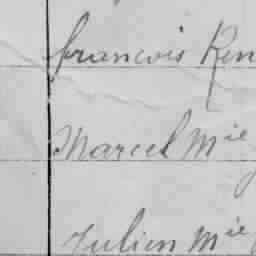 francois Ren
Marcel Mie
Julien Mie